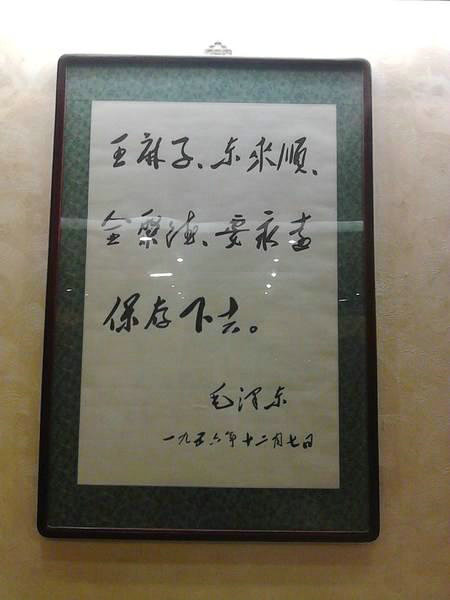 王麻子、东來順、
全聚德、要永遠
保存下去。
毛泽东
一九五六年十二月七日